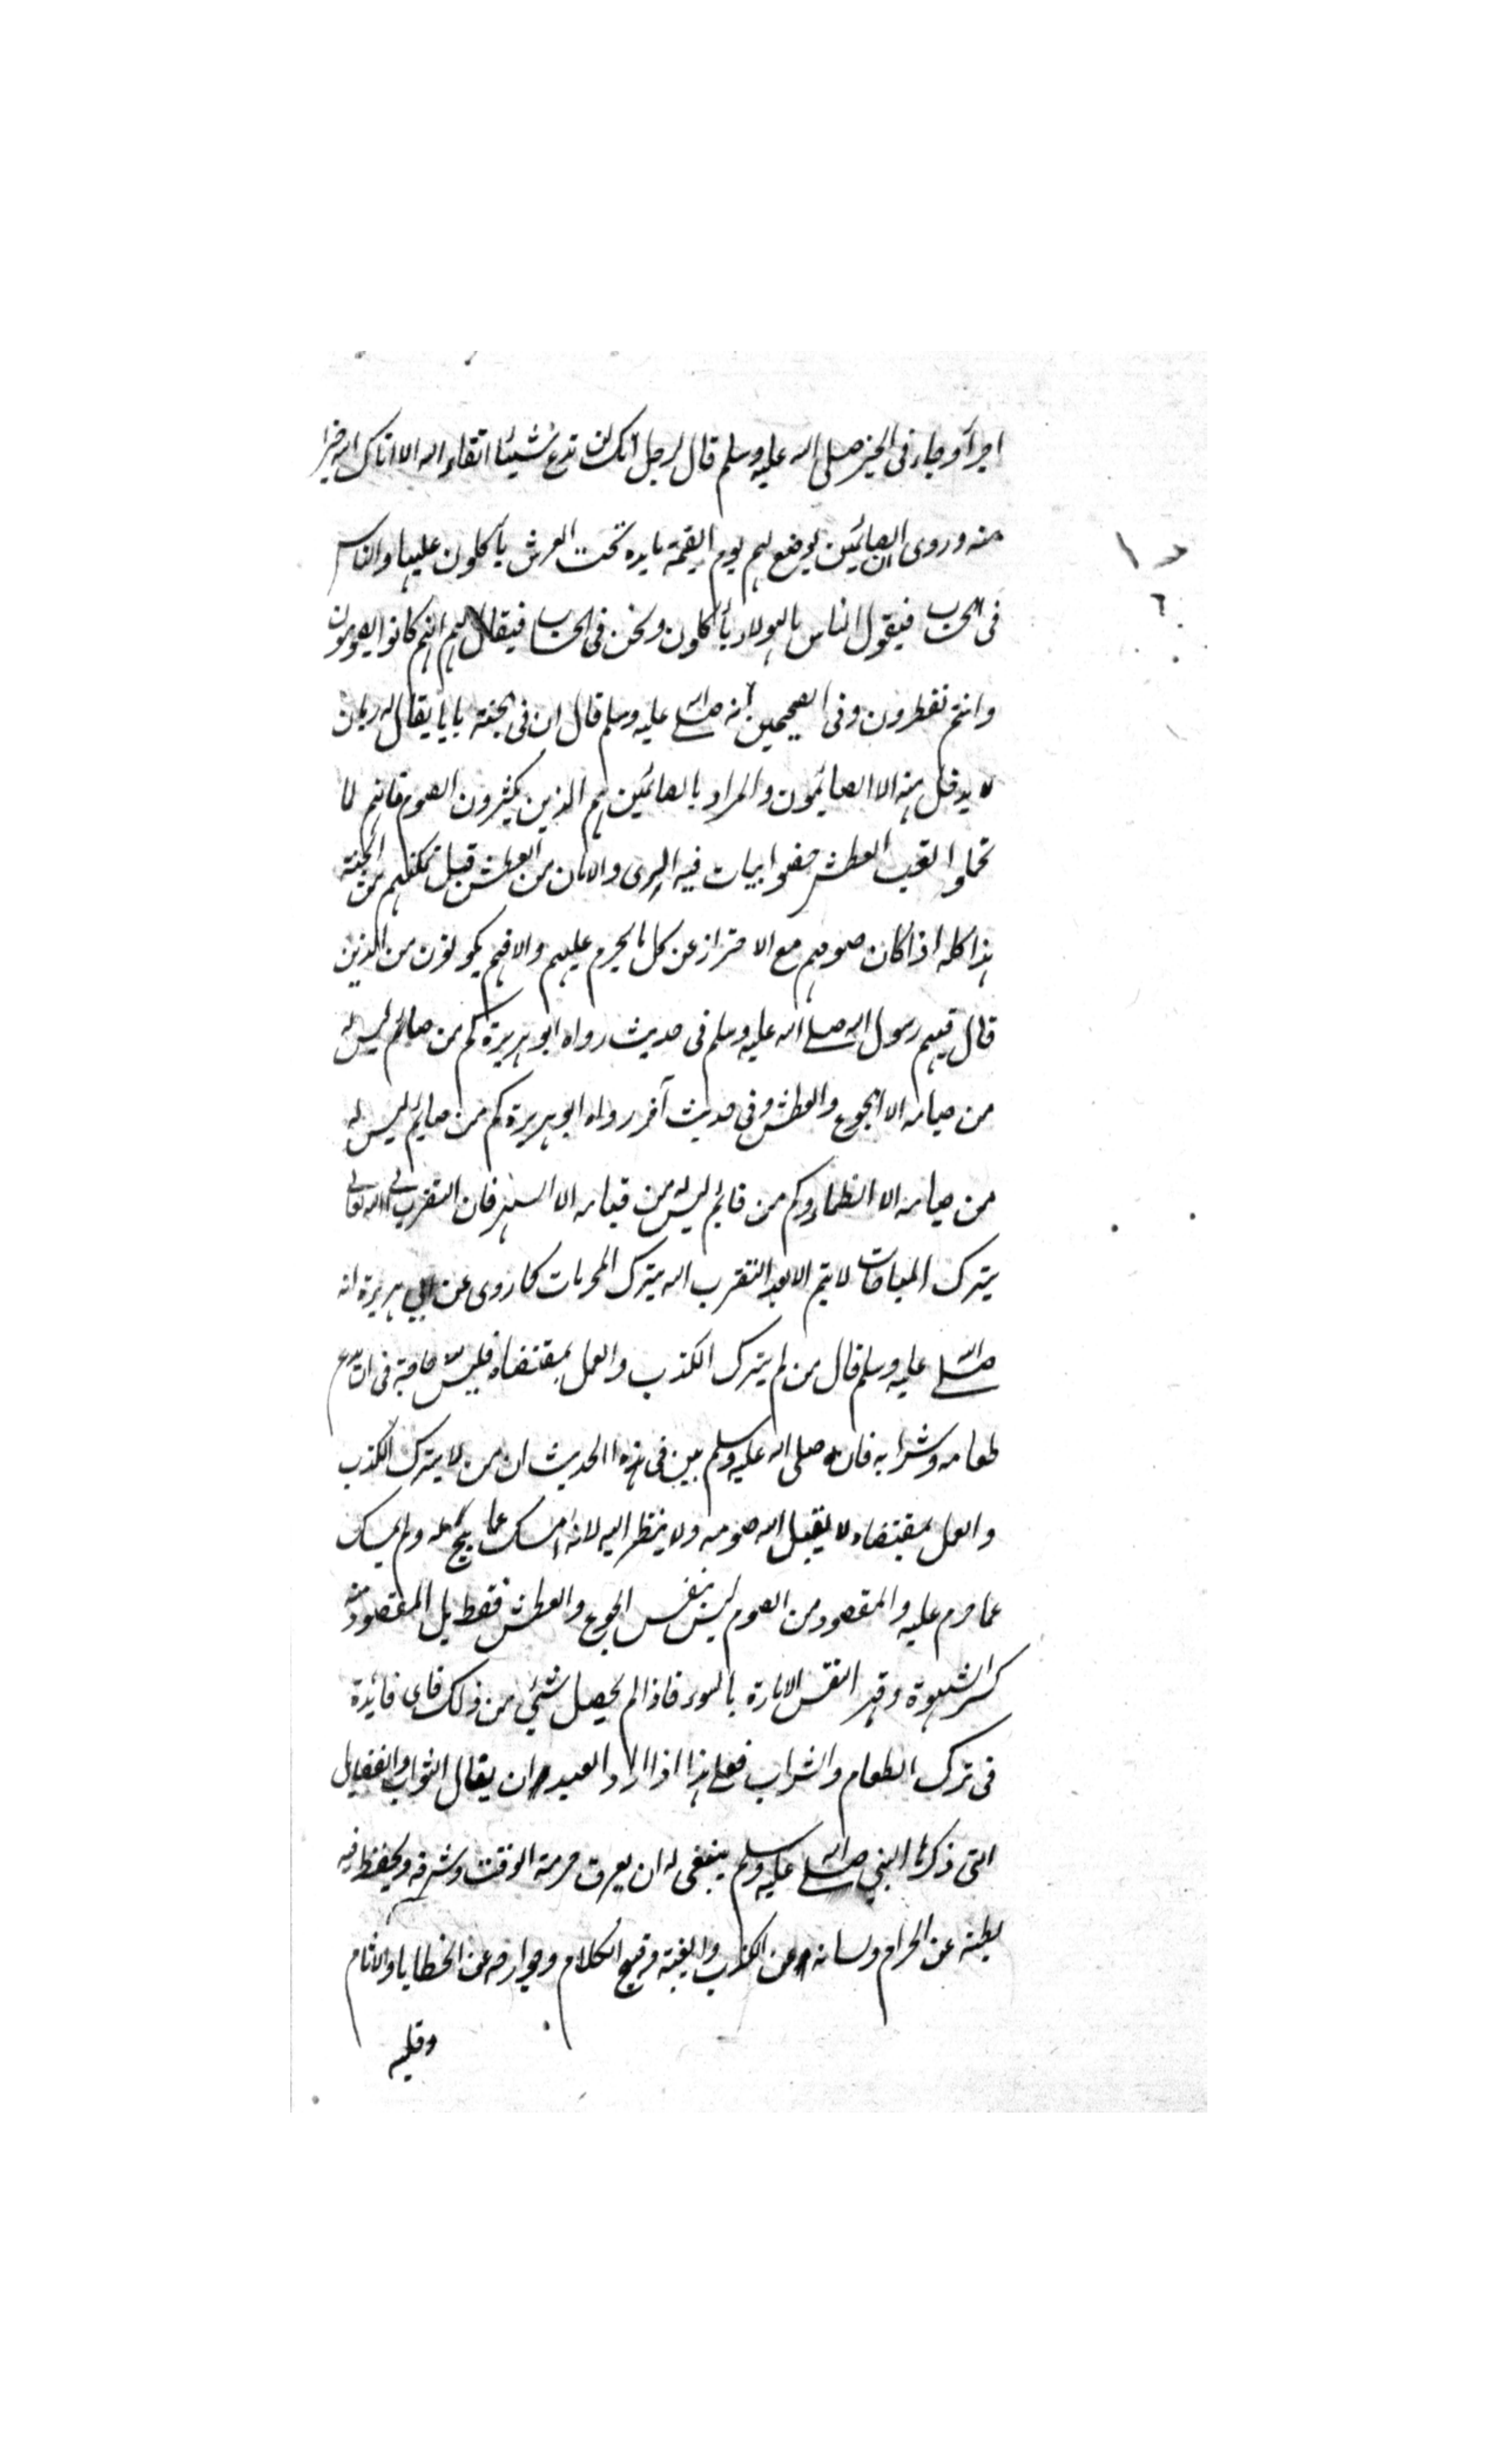 اجرا وجاء في الخبر صلى الله عليه وسلم قال لرجل انك لن تدع شيئا اتقاء الله الا اتاك الله خيرا
منه وروى ان الصائمين يوضع لهم يوم القيمة مايده تحت العرش يأكلون عليها والناس
في الحساب فيقول الناس ما لهولاء يأكلون ونحن في الحساب فيقال لهم انهم كانوا يصومون
وانتم تفطرون وفى الصحيحين انه صلى الله عليه وسلم قال ان في الجنة بابا يقال له ريان
لا يدخل منه الا الصائمون والمراد بالصائمين هم الذين يكثرون الصوم فانهم لما
تحملوا تعب العطش خصوا بباب فيه الرى والامان من العطش قبل تمكنهم من الجنة
هذا كله اذا كان صومهم مع الاحتراز عن كل ما يحرم عليهم والا فهم يكونون من الذين
قال فيهم رسول الله صلى الله عليه وسلم في حديث رواه ابو هريرة كم من صائم ليس له
من صيامه الا الجوع والعطش وفى حديث آخر رواه ابو هريرة كم من صايم ليس له
من صيامه الا الظماء وكم من قايم ليس له من قيامه الا السهر فان التقرب الى الله تعالى
بترك المباحات لا يتم الا بعد التقرب اليه بترك المحرمات كما روى عن ابي هريرة انه
صلى الله عليه وسلم قال من لم يترك الكذب والعمل بمقتضاه فليس لله حاجة في ان يدع
طعامه وشرابه فانه صلى الله عليه وسلم بين في هذا الحديث ان من لا يترك الكذب
والعمل بمقتضاه لا يقبل الله صومه ولا ينظر اليه لانه امسك عما يبح له ولم يمسك
عما حرم عليه والمقصود من الصوم ليس نفس الجوع والعطش فقط بل المقصود منه
كسر الشهوة وقهر النفس الامارة بالسوء فاذا لم يحصل شئ من ذلك فاى فائدة
في ترك الطعام والشراب فعلى هذا اذا اراد العبد ان يقال الثواب والفضايل
التى ذكرها النبي صلى الله عليه وسلم ينبغى له ان يعرف حرمة الوقت وشرفه ويحفظ فيه
بطنه عن الحرام ولسانه عن الكذب والغيبة وقبيح الكلام وجوارحه عن الخطايا والاثام
وقلبه